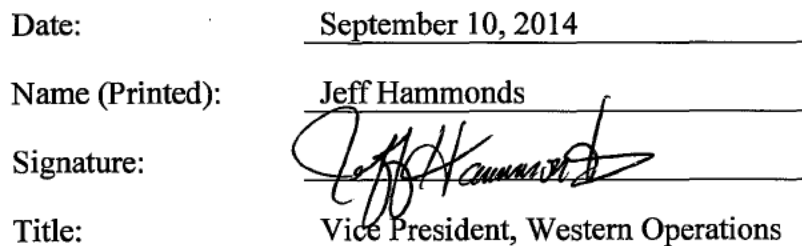 Date: September 10, 2014
Name (Printed): Jeff Hammonds
Signature: Jeff Hammonds
Title: Vice President, Western Operations